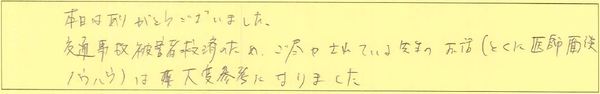 本日はありがとうございました。
交通事故被害者救済のため、ご尽力されている先生の お話(とくに医師面談
ノウハウ)は 大変参考になりました